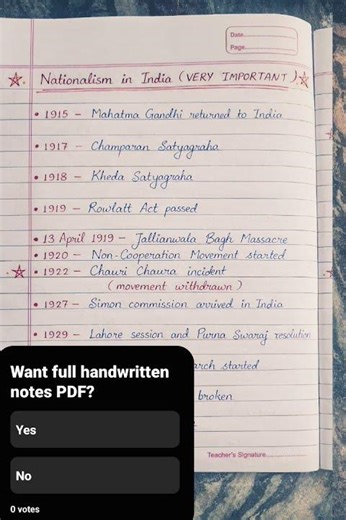 Date
Page
Nationalism in India (VERY IMPORTANT)
• 1915 – Mahatma Gandhi returned to India
• 1917 – Champaran Satyagraha
• 1918 – Kheda Satyagraha
• 1919 – Rowlatt Act passed
• 13 April 1919 – Jallianwala Bagh Massacre
• 1920 – Non-Cooperation Movement started
• 1922 – Chauri Chaura incident
(movement withdrawn)
• 1927 – Simon commission arrived in India
• 1929 – Lahore session and Purna Swaraj resolution
arch started
broken
Teacher's Signature
Want full handwritten
notes PDF?
Yes
No
0 votes